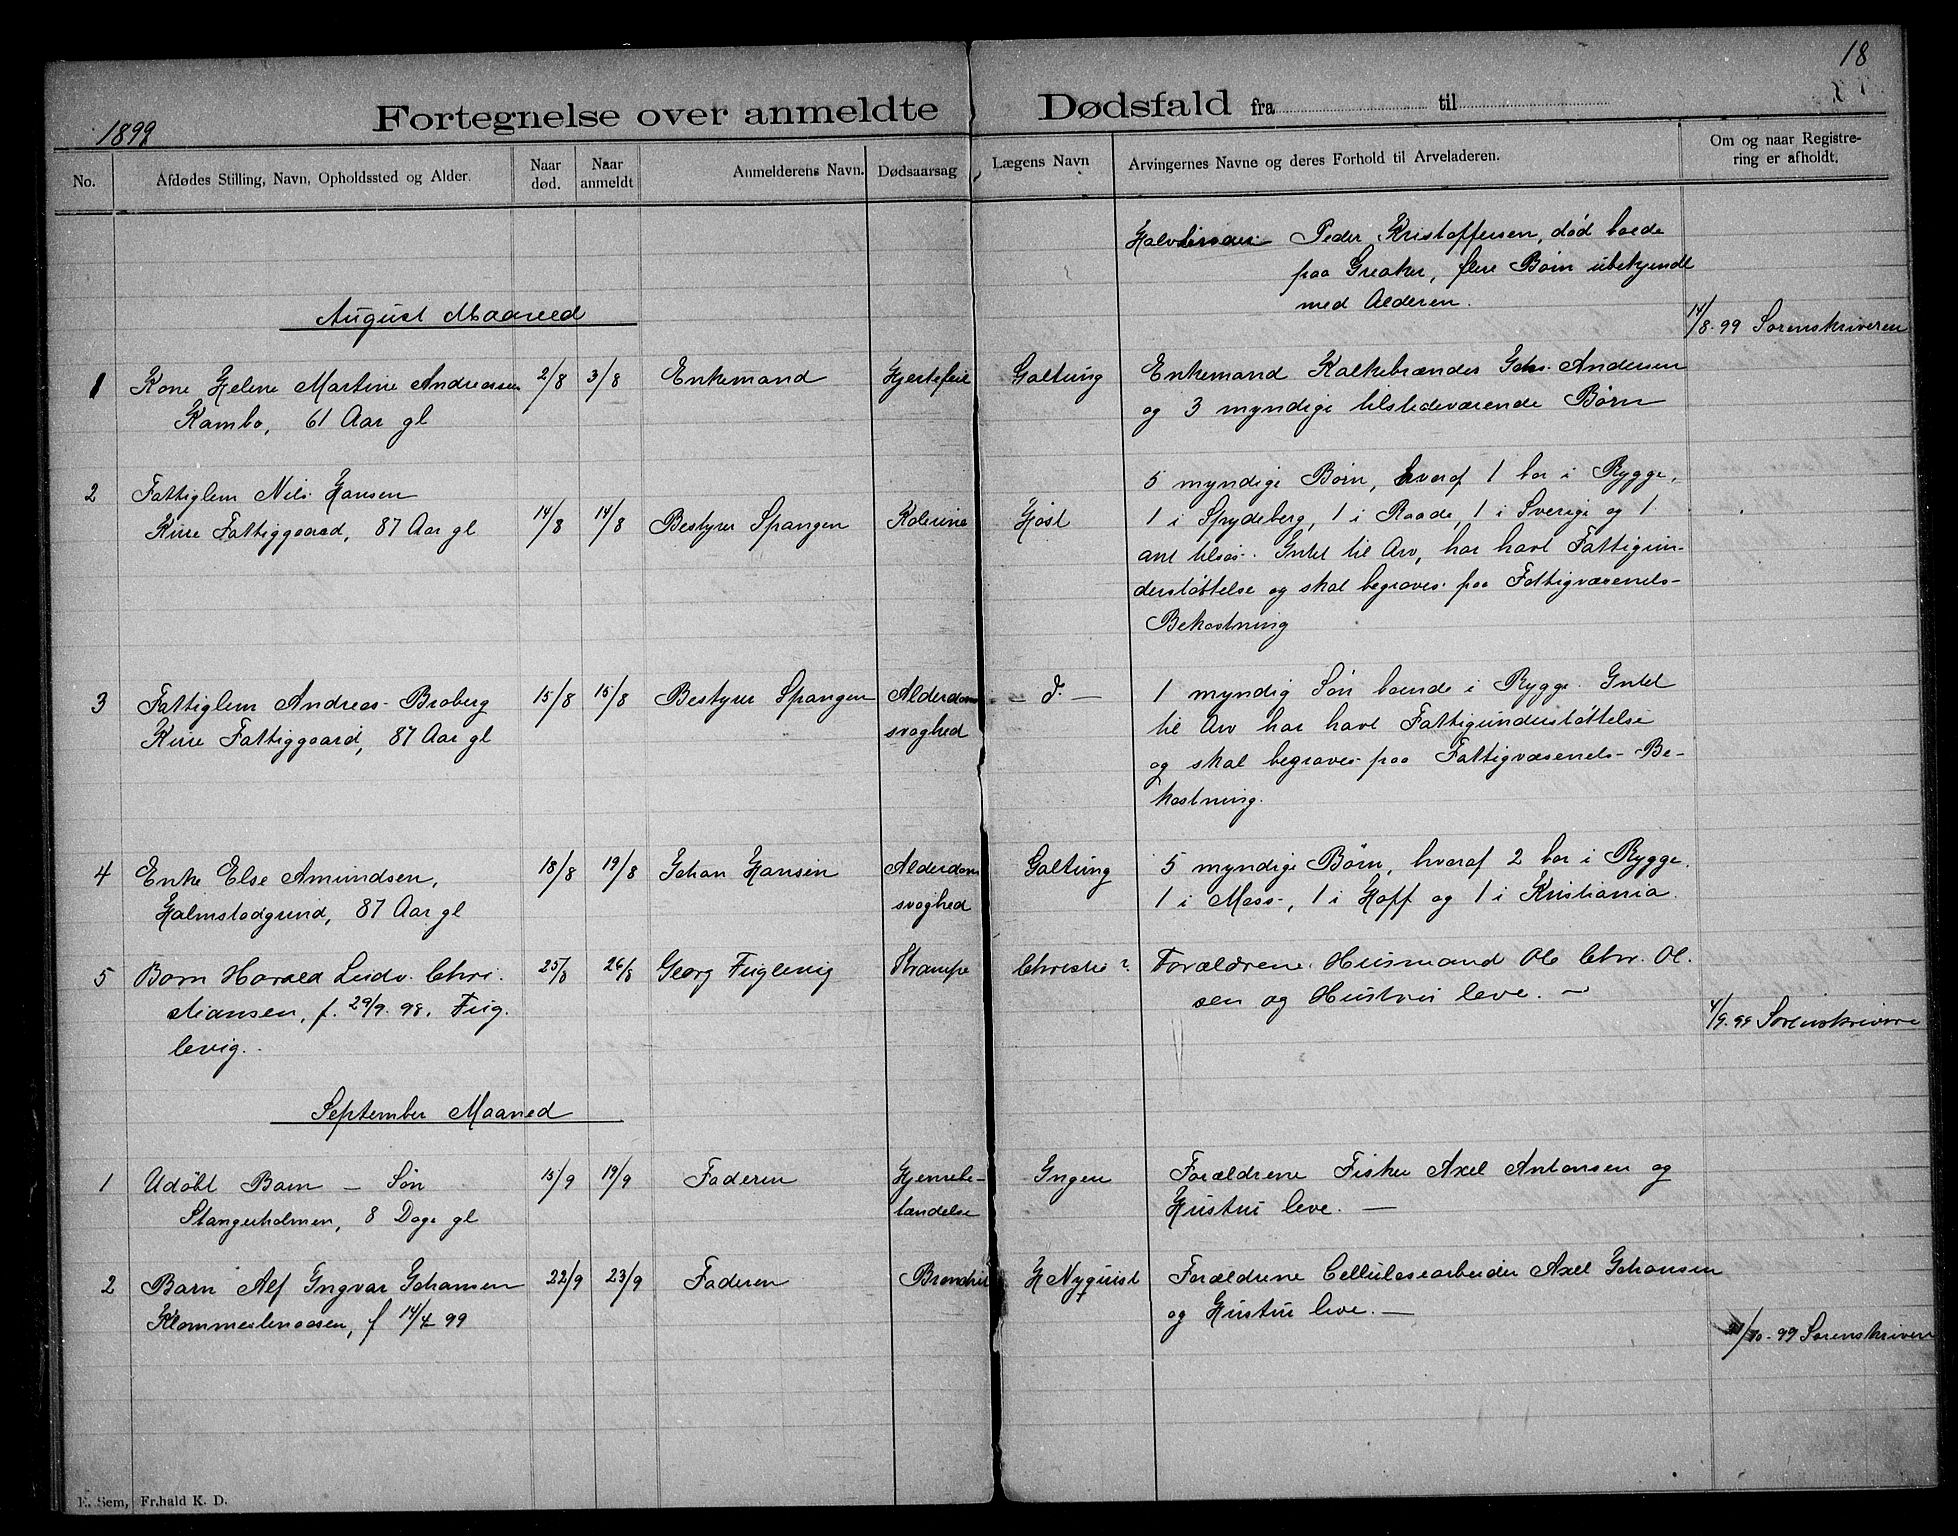 18
Fortegnelse over anmeldte Dødsfald fra til
1899
No.
Afdødes Stilling, Navn, Opholdssted og Alder.
Naar død.
Naar anmeldt
Anmelderens Navn.
Dødsaarsag
Lægens Navn
Arvingernes Navne og deres Forhold til Arveladeren.
Om og naar Registrering er afholdt.
Halvbroder Peder Kristoffersen, død boede
paa Greaker, flere Børn ubekjendt
med Alderen.
August Maaned
14/8-99 Sorenskriveren
1 Kone Helene Martine Andreassen 2/8 3/8 Enkemand Hjertefeil Galtung Enkemand Kalkebrænder Johs. Andersen
Kambo, 61 Aar gl og 3 myndige tilstedeværende Børn
2 Fattiglem Nils Hansen 5 myndige Børn, hvoraf 1 bor i Rygge,
Kirre Fattiggaard, 87 Aar gl 14/8 14/8 Bestyrer Spangen Kolerine Hjost 1 i Spydeberg, 1 i Raade, 1 i Sverige og 1
ant tilsøs. Intet til Arv, har havt Fattigun-
derstøttelse og skal begraves paa Fattigvæsenets
Bekostning
3 Fattiglem Andreas Broberg 15/8 15/8 Bestyrer Spangen Alderdoms — d. — 1 myndig Søn boende i Rygge. Intet
Kirre Fattiggaard, 87 Aar gl svaghed til Arv har havt Fattigunderstøttelse
og skal begraves paa Fattigvæsenets Be-
kostning.
4 Enke Else Amundsen, 18/8 19/8 Johan Hansen Alderdoms Galtung 5 myndige Børn, hvoraf 2 bor i Rygge.
Halmstadgrund, 87 Aar gl svaghed 1 i Moss, 1 i Hoff og 1 i Kristiania.
5 Barn Harald Ludv. Chri- 25/8 26/8 Georg Fuglevig Krampe Christie? Forældrene Husmand Ole Chr. Ol-
stiansen, f. 29/9 98. Fug- sen og Hustru leve. —
levig. 4/9-99 Sorenskrivere
September Maaned
1 Udøbt Barn — Søn 15/9 19/9 Faderen Hjernebe- Ingen Forældrene Fisker Axel Antonsen og
Stangerholmen, 8 Dage gl tændelse Hustru leve. —
2 Barn Alf Ingvar Johansen 22/9 23/9 Faderen H Nyquist Forældrene Cellulosearbeider Axel Johansen
f 14/4 99 og Hustru leve. —
/10-99 Sorenskrivere
E. Sem, Fr.hald K. D.